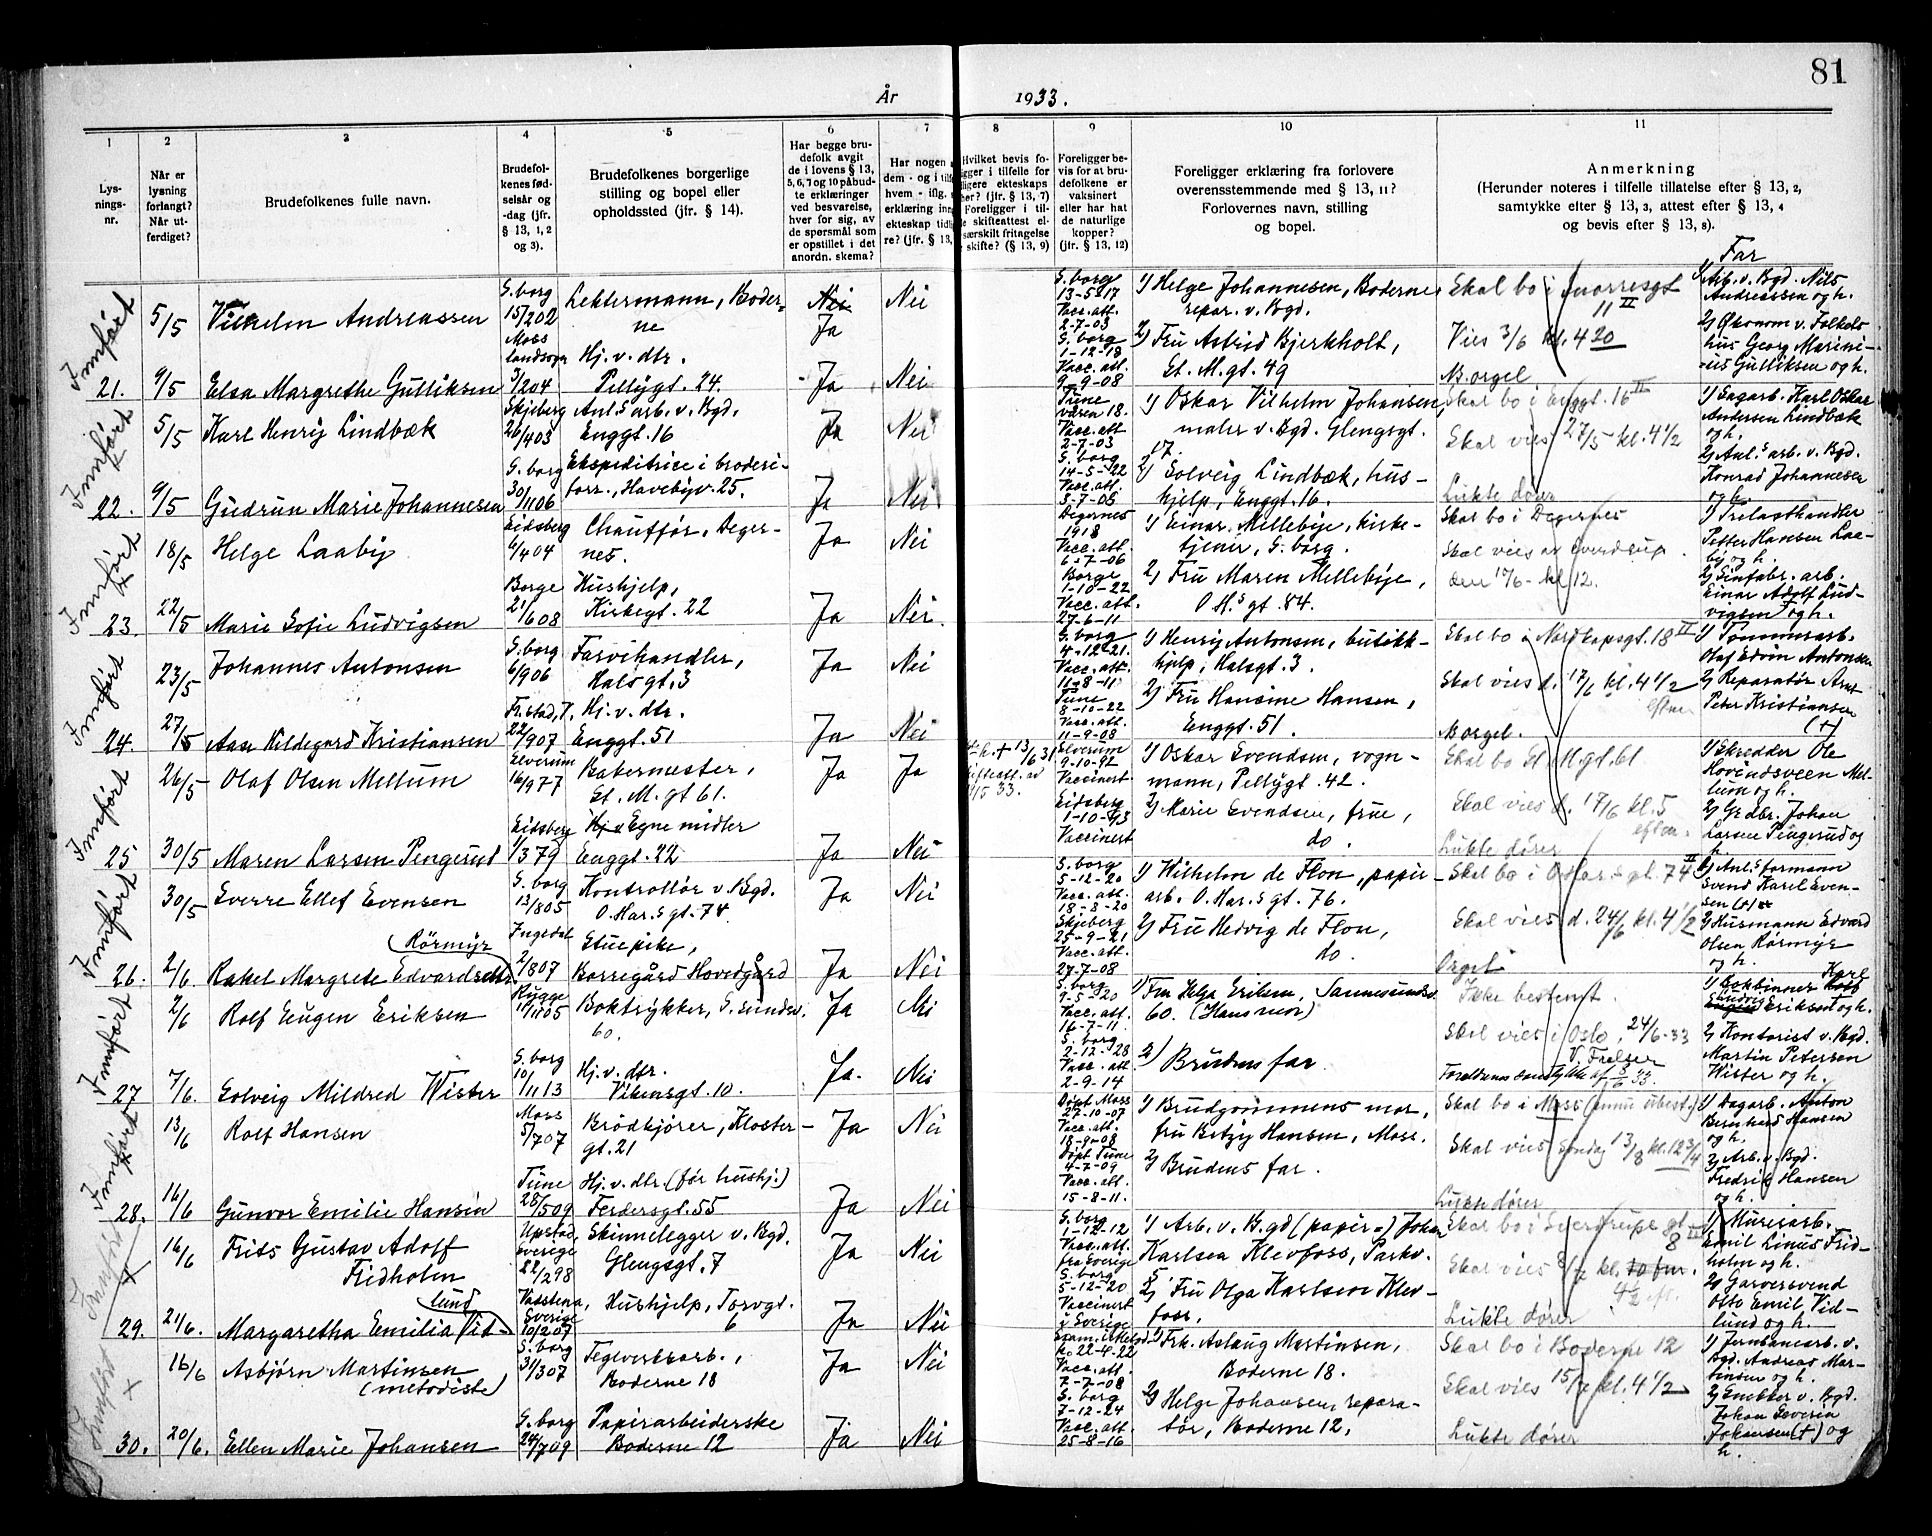 81
År 1933.
1 2 3 4 5 6 7 8 9 10 11
Lys-
nings-
nr.
Når er
lysning
forlangt?
Når ut-
ferdiget?
Brudefolkenes fulle navn.
Brudefol-
kenes fød-
selsår og
-dag (jfr.
§ 13, 1, 2
og 3).
Brudefolkenes borgerlige
stilling og bopel eller
opholdssted (jfr. § 14).
Har begge bru-
defolk avgit
de i lovens § 13,
5, 6, 7 og 10 påbud-
te erklæringer
ved besvarelse,
hver for sig, av
de spørsmål som
er opstillet i det
anordn. skema?
Har nogen
dem - og i til
hvem - iflg.
erklæring inn
ekteskap tidl
re? (jfr. § 13,
Hvilket bevis fo-
ligger i tilfelle for
ligere ekteskaps
Foreligger i til-
e skifteattest el-
særskilt fritagelse
skifte? (§ 13, 9)
Foreligger be-
vis for at bru-
defolkene er
vaksinert
eller har hat
de naturlige
kopper?
(jfr. § 13, 12)
Foreligger erklæring fra forlovere
overensstemmende med § 13, 11?
Forlovernes navn, stilling
og bopel.
Anmerkning
(Herunder noteres i tilfelle tillatelse efter § 13, 2,
samtykke efter § 13, 3, attest efter § 13, 4
og bevis efter § 13, 8).
Far
Innført
5/5 Vilhelm Andreassen
S.borg
15/202
Lektermann, Boder-
ne
Nei
Ja
Nei
S.borg
13-5-17
Vacc.att.
2-7-03
1) Helge Johannesen, Boderne,
repar. v. Bgd.
11 II
1) Arb. v. Bgd. Nils
Andreassen og h.
21. 9/5 Elsa Margrethe Gulliksen
Moss
landsogn
3/204
Hj. v. dtr.
Pellygt. 24.
Ja Nei
S.borg
1-12-18
Vacc.att.
9-9-08
2) Fru Astrid Bjerkholt,
St. M.gt. 49
Vies 3/6 kl. 4 20
M.orgel
2) Økonom v. Folkets
hus Georg Marini-
us Gulliksen og h.
Innført
5/5 Karl Henry Lindbæk
Skjeberg
26/403
Anl.s arb. v. Bgd.
Enggt. 16
Ja Nei
Tune
våren 18.
Vacc.att
2-7-03
1) Oskar Vilhelm Johansen,
maler v. Bgd. Glengsgt.
17.
Skal bo i Enggt. 16 II
Skal vies 27/5 kl. 4 1/2
1) Sagarb. Karl Oskar
Andersen Lindbæk
og h.
22. 9/5 Gudrun Marie Johannesen
S.borg
30/1106
Ekspeditrice i broderi-
forr., Havebyv. 25.
Ja Nei
S.borg
14-5-22
Vacc.att.
3-7-06
2) Solveig Lindbæk, hus-
hjelp, Enggt. 16.
Lukte dører
2) Anl.s arb. v. Bgd.
Konrad Johannesen
og h.
Innført
18/5 Helge Laaby
Eidsberg
6/404
Chauffør, Deger-
nes.
Ja Nei
Degernes
1918
Vacc.att.
6-7-06
1) Einar Mellebye, kirke-
tjener, S.borg.
Skal bo i Degernes
Skal vies av Sverdrup
den 17/6 - kl 12.
1) Trelasthandler
Petter Hansen Laa-
by og h.
23. 22/5 Marie Sofie Ludvigsen
Borge
21/608
Hushjelp,
Kirkegt. 22
Ja Nei.
Borge
1-10-22
Vacc.att.
27-6-11
2) Fru Maren Mellebye,
O.H.s gt. 84.
2) Sinfabr. arb.
Einar Adolf Lud-
vigsen og h.
Innført
23/5 Johannes Antonsen
S.borg
6/906
Farvehandler,
Hals gt. 3
Ja Nei
S.borg
4-12-21.
Vacc.att.
11-8-11
1) Henry Antonsen, butikk-
hjelp, Halsgt. 3.
Skal bo i Nordkapsgt. 18 II
Skal vies d. 17/6 kl. 4 1/2
eftm
1) Tommerarb.
Olaf Edvin Antonsen
24. 27/5 Aase Hildegard Kristiansen
Fr.stad,
22/907
Hj. v. dtr.
Enggt. 51
Ja Nei
Tune
8-10-22
Vacc.att.
11-9-08
2) Fru Hansine Hansen,
Enggt. 51.
M.orgel.
2) Reparatør Arnt
Peter Kristiansen
(+)
Innført
26/5 Olaf Olsen Mellum
Elverum
16/977
Bakermester,
St. M. gt 61.
Ja Ja
h. + 13/6 31
skifteatt. av
15 33.
Elverum
9-10-92
Vaccinert
1) Oskar Svendsen, vogn-
mann, Pellygt. 42.
Skal bo St. M.gt. 61
Skal vies d. 17/6 kl. 5
eftm.
1) Skredder Ole
Hovindsveen Mel-
lum og h.
25 30/5 Maren Larsen Pengerud
Eidsberg
1/379
Hj. v Egne midler
Enggt. 22
Ja Nei
Eidsberg
1-10-93
Vaccinert
2) Marie Svendsen, frue,
do.
Lukte dører
2) Gr.dbr. Johan
Larsen Pengerud og
h.
Innført
30/5 Sverre Ellef Evensen
S.borg
13/805
Kontrollør v. Bgd.
O. Har.s gt. 74
Ja Nei
S.borg
5-12-20
Vacc.att.
18-8-20
1) Wilhelm de Flon, papir-
arb. O. Har.s gt. 76.
Skal bo i O Har.s gt. 74 II
Skal vies d. 24/6 kl. 4 1/2
1) Anl.s formann
Svend Karel Even-
sen (+)
26. 2/6 Rakel Margrete Edvardsen
(Rörmyr
Ingedal
2/807
Stuepike,
Borregård Hovedgård
Ja Nei
Skjeberg
25-9-21
Vacc.att.
27-7-08
2) Fru Hedvig de Flon,
do.
Orgel
2) Husmann Edvard
Olsen Rörmyr
og h.
Innført
2/6 Rolf Eugen Eriksen
Rygge
11/1105
Boktrykker, S.sundsv.
60.
Ja Nei
S.borg
9-5-20
Vacc.att.
16-7-11.
1) Fru Helga Eriksen, Sannesundsv.
60. (Hans mor)
Ikke bestemt.
Skal vies i Oslo, 24/6-33
V. Frelser
1) Bokbinner Karl
Ludvig Eriksen og h.
27 7/6. Solveig Mildred Wister
S.borg
10/1113
Hj. v. dtr.
Vikensgt. 10.
Ja. Nei
S.borg
2-12-28
Vacc.att
2-9-14
2) Brudens far.
Foreldrenes samtykke af 5/6 33.
2) Kontorist v. Bgd.
Martin Petersen
Wister og h.
Innført
13/6 Rolf Hansen
Moss
5/707
Brödkjører, Kloster-
gt. 21
Ja Nei
Døpt Moss
27-10-07
Vacc.att.
18-9-08
1) Brudgommens mor,
fru Betzy Hansen, Moss.
Skal bo i Moss (ennu ubest.)
Skal vies søndag 13/8 kl. 12 3/4
1) Dagarb. Anton
Bernhard Hansen
og h.
28. 16/6 Gunvor Emilie Hansen
Tune
28/509
Hj. v. dtr. (før hushj.)
Ferdersgt. 55
Ja Nei
Døpt Tune
4-7-09
Vacc.att.
15-8-11.
2) Brudens far.
Lukte dører
2) Arb. v. Bgd.
Fredrik Hansen
og h.
Innført
16/6 Frits Gustav Adolf
Fridholm
Sverige
22/298
Skinnelegger v. Bgd.
Glengsgt. 7
Ja Nei
S.borg
1-12-12
Vacc.att.
fra Sverige
1) Arb. v. Bgd (papir-) Johan
Karlsen Klevfoss, Parkv.
5
Skal bo i Sverdrups gt
8 III
Skal vies kl. 10 fm.
4 1/2
1) Murerarb.
Emil Linus Frid-
holm og h.
29. 21/6. Margaretha Emilia Vid-
lund
Vadstena,
Sverige
10/207
Hushjelp, Torvgt.
6
Ja Nei
S.borg
5-12-20
Vaccinert
i Sverige
2) Fru Olga Karlsen Klev-
foss.
Lukte dører
2) Garversvend
Otto Emil Vid-
lund og h.
Innført
16/6 Asbjørn Martinsen
(metodist)
S.borg
31/307
Teglverksarb.,
Boderne 18
Ja Nei
k. 22-4-22
Vacc.att.
7-7-08
1) Frk. Aslaug Martinsen,
Boderne 18.
Skal bo i Boderne 12
Skal vies 15/7 kl. 4 1/2
1) Jernbanearb. v.
Bgd. Andreas Mar-
tinsen og h.
30. 20/6. Ellen Marie Johansen
S.borg
24/709
Papirarbeiderske
Boderne 12
Ja Nei
S.borg
7-12-24
Vacc.att.
25-8-16
2) Helge Johansen, repara-
tør, Boderne 12,
Lukte dører
2) Snekker v. Bgd.
Johan Severin
Johansen (+) og
h.
Innført